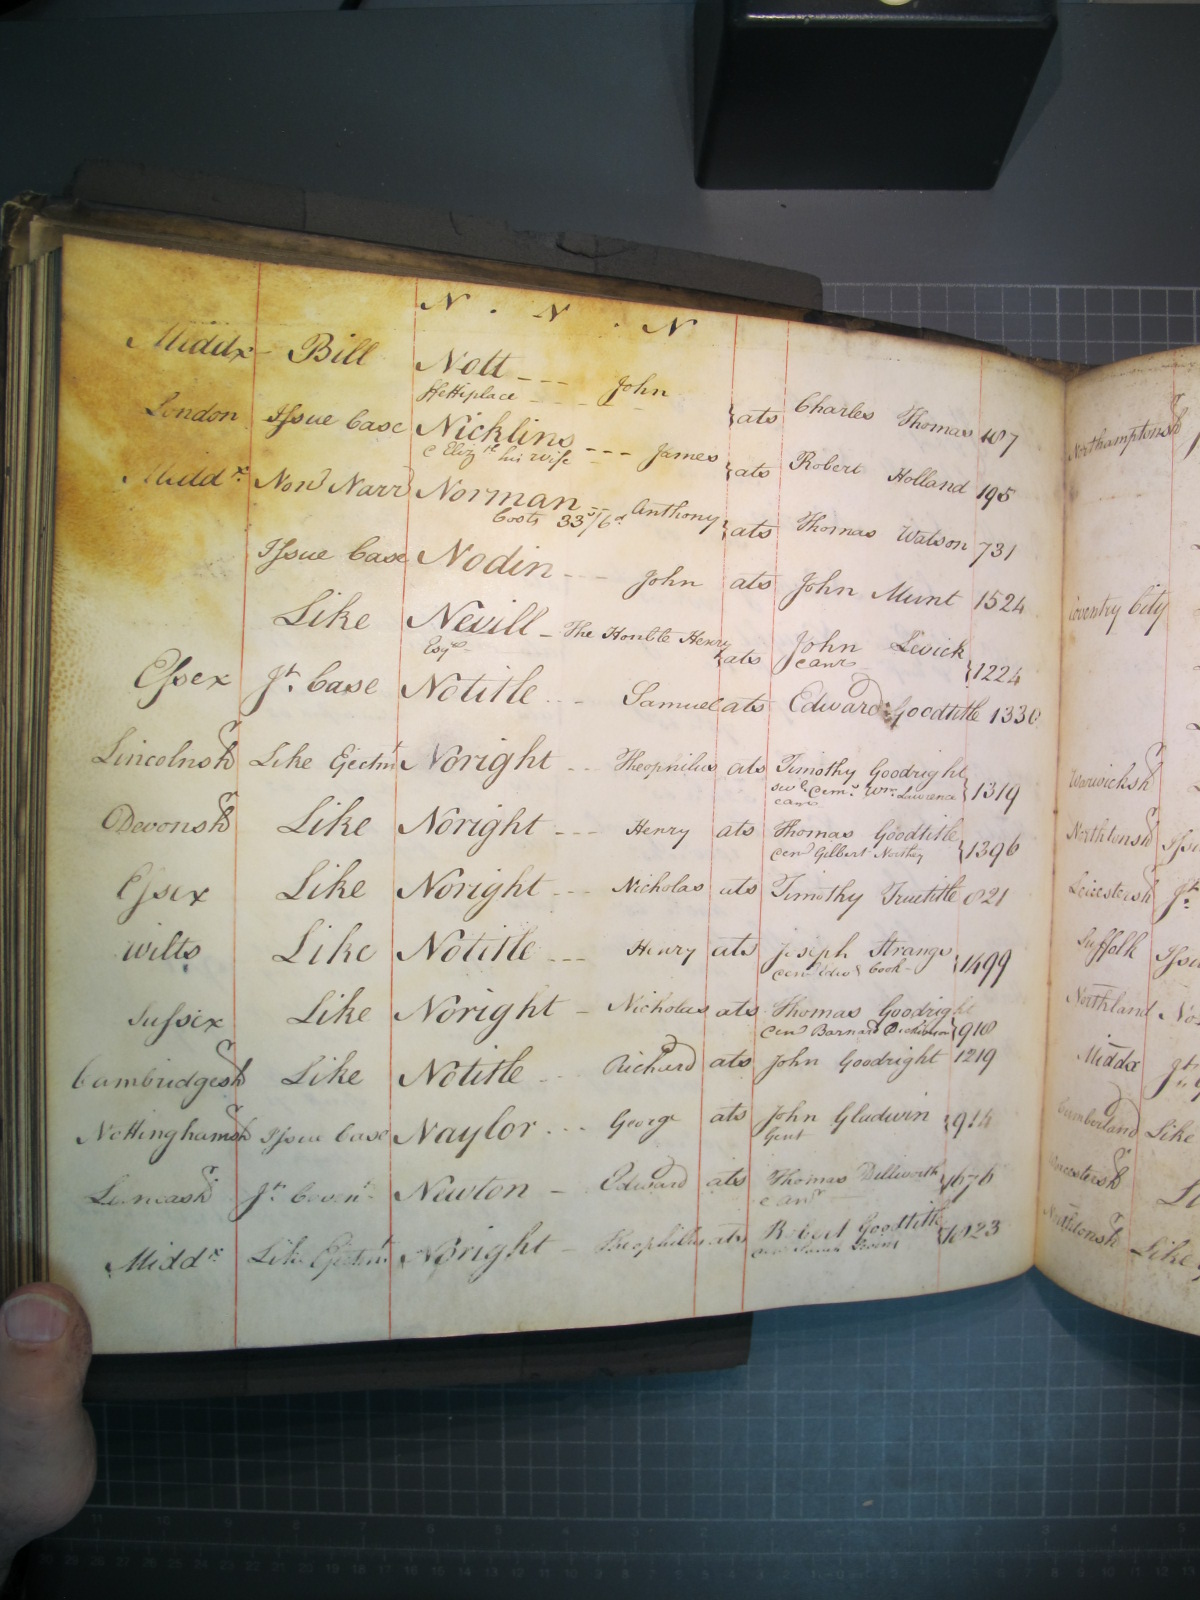 N . N . N
Middx Bill Nott --- John } ats Charles Thomas 187
ffettiplace
London Issue Case Nicklins --- James } ats Robert Holland 195
& Eliz.th his wife
Midd.x Non Narr Norman -- Anthony } ats Thomas Watson 731
Costs 33s/6d
Issue Case Nodin --- John ats John Munt 1524
Like Nevill - The Honble Henry } ats John Levick } 1224
Esqr. & anr
Essex Jt. Case Notitle --- Samuel ats Edward Goodtitle 1330
Lincolnsh Like Ejectmt Noright -- Theophilus ats Timothy Goodright } 1319
sevl Dems Wm. Lawrence
& anr
Devonsh Like Noright --- Henry ats Thomas Goodtitle } 1396
Dem Gilbert Northey
Essex Like Noright --- Nicholas ats Timothy Truetitle 821
Wilts Like Notitle --- Henry ats Joseph Strange } 1499
Dem Edwd Cook
Sussex Like Noright - Nicholas ats Thomas Goodright } 918
Dem Barnard Dickinson
Cambridgesh Like Notitle -- Richard ats John Goodright 1219
Nottinghamsh Issue Case Naylor --- George ats John Gladwin } 914
Gent
Lancash Jt. Coven.t Newton - Edward ats Thomas Dilleworth } 1676
& anr
Midd.x Like Ejectmt Noright - Theophilus ats Robert Goodtitle } 1023
Dem Sarah
Northamptonsh
Coventry City
Warwicksh
Northtonsh Issu
Leicestersh Jt.
Suffolk Issu
Northland No
Middx Jt.
Cumberland Like
Northtonsh Like